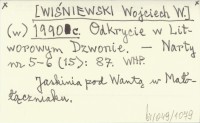 [WIŚNIEWSKI Wojciech W.]
(w) 1990 c. Odkrycie w Lit-
worowym Dzwonie. – Narty
nr 5-6 (15): 87. WHP.
Jaskinia pod Wantą w Mało-
łączniaku.